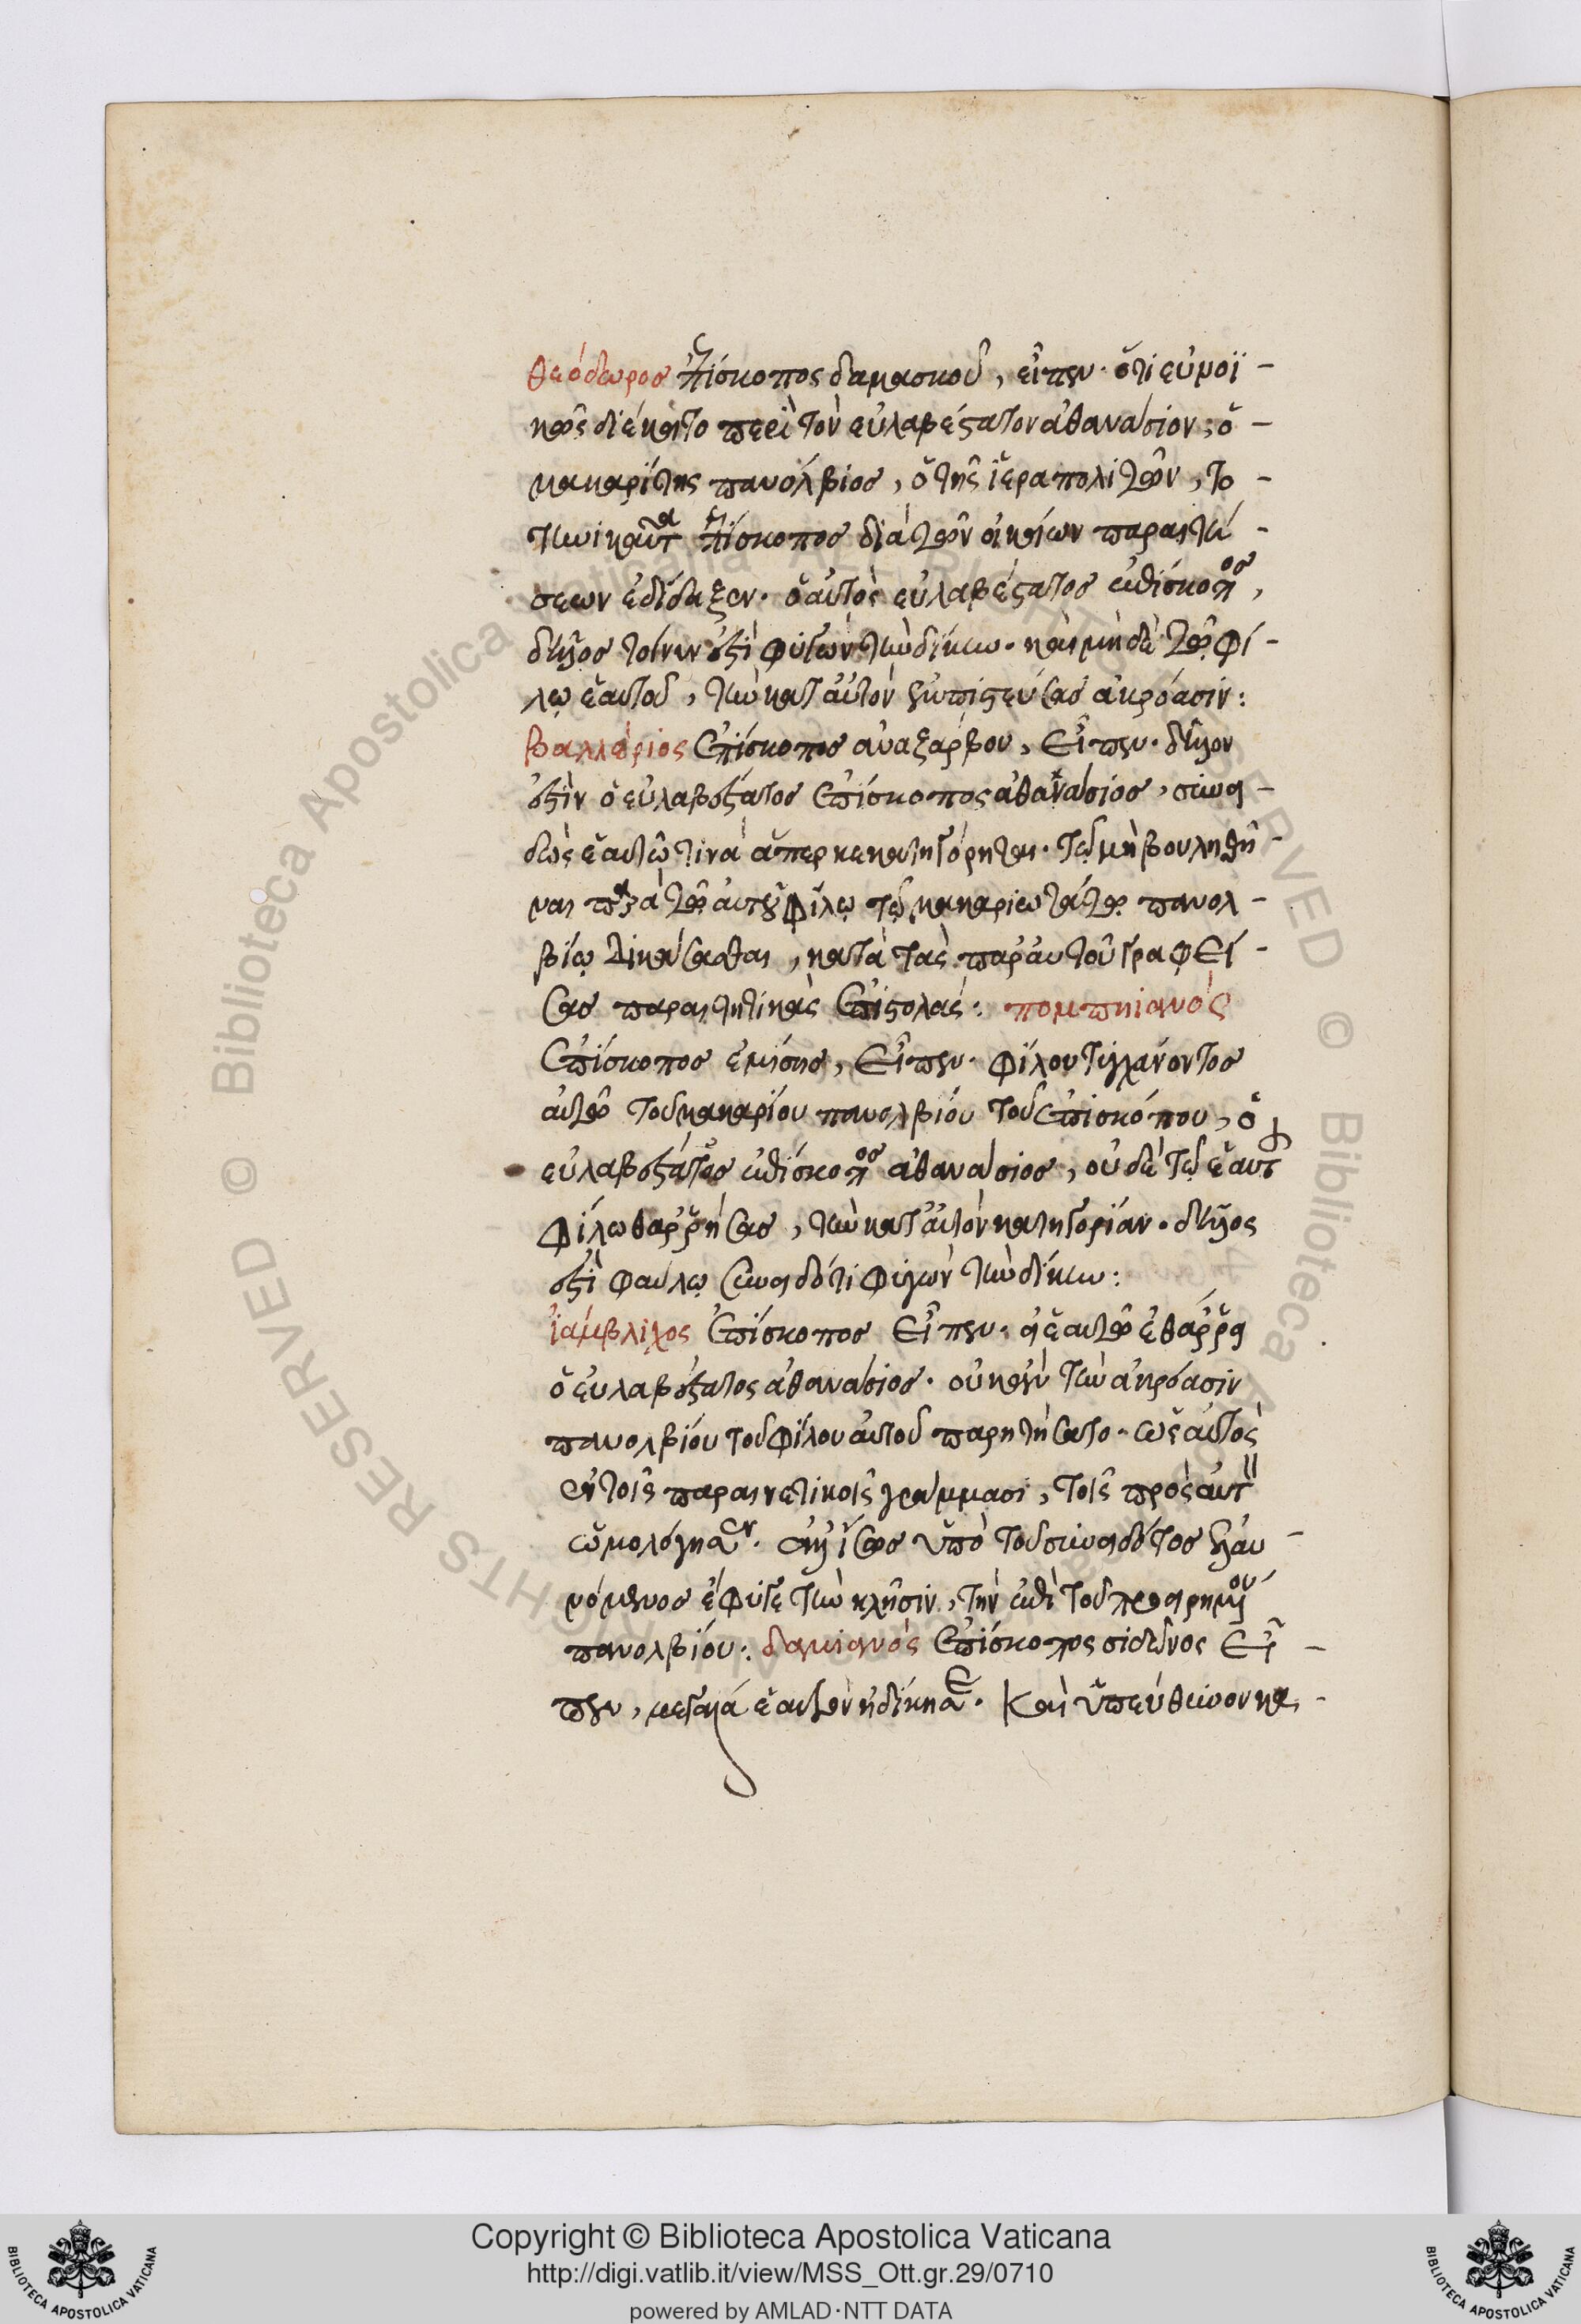 θεόδωρος ἐπίσκοπος δαμασκοῦ, εἶπεν· ὅτι εὐμοϊ-
κῶς διέκειτο περὶ τὸν εὐλαβέστατον ἀθανάσιον, ὁ
μακαρίτης πανόλβιος, ὁ τῆς ἱεραπολιτῶν, το
τηνικαῦτα ἐπίσκοπος διὰ τῶν οἰκείων παραιτή-
σεων ἐδίδαξεν· ὁ αὐτὸς εὐλαβέστατος ἐπίσκοπος,
δῆλος τοίνυν ἐστὶ φυγὼν τὴν δίκην· καὶ μηδὲ τῶ φί-
λω ἑαυτοῦ, τὴν κατ' αὐτὸν ἐμπιστεύσας ἀκρόασιν:
βαλλέριος ἐπίσκοπος ἀναζάρβου, εἶπεν· δῆλον
ἐστὶν ὁ εὐλαβέστατος ἐπίσκοπος ἀθανάσιος, συνει-
δὼς ἑαυτῶ τινὰ ἅπερ κεκατηγόρηται· τῶ μὴ βουληθῆ-
ναι παρὰ τῶ αὐτοῦ φίλω τῶ μακαριωτάτω πανολ-
βίω δικάσασθαι, κατὰ τὰς παρ' αὐτοῦ γραφεί-
σας παραιτητικὰς ἐπιστολάς: πομπηιανὸς
ἐπίσκοπος ἐμίσης, εἶπεν· φίλου τυγχάνοντος
αὐτῶ τοῦ μακαρίου πανολβίου τοῦ ἐπισκόπου, ὁ
εὐλαβέστατος ἐπίσκοπος ἀθανάσιος, οὐδὲ τῶ ἑαυτοῦ
φίλω θαρρήσας, τὴν κατ' αὐτὸν κατηγορίαν· δῆλος
ἐστὶ φαύλω συνειδότι φυγὼν τὴν δίκην:
ἰάμβλιχος ἐπίσκοπος εἶπεν· εἰ ἑαυτῶ ἐθάρρει
ὁ εὐλαβέστατος ἀθανάσιος· οὐκ ἂν τὴν ἀκρόασιν
πανολβίου τοῦ φίλου αὐτοῦ παρητήσατο· ὡς αὐτὸς
ἐν τοῖς παραινετικοῖς γράμμασι, τοῖς πρὸς αὐτὸν
ὡμολόγησεν· ἀλλ' ἴσως ὑπὸ τοῦ συνειδότος ἐλαυ-
νόμενος ἔφυγε τὴν κλῆσιν, τὴν ἐπὶ τοῦ προειρημένου
πανολβίου: δαμιανὸς ἐπίσκοπος σιδῶνος εἶ-
πεν, μεγάλα ἑαυτὸν ἠδίκησε· καὶ ὑπεύθυνον κα-